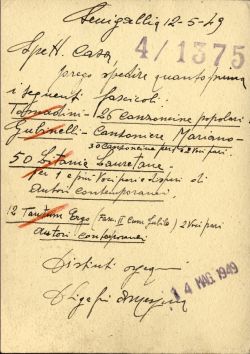 Senigallia 12-5-49
Spett. Casa,
4/1375
prego spedire quanto prima
i seguenti fascicoli:
Tomadini - 26 canzoncine popolari
Gubinelli - Cantoniere Mariano -
30 canzoncine per 1 e 2 Voci pari.
50 Litanie Lauretane -
per 1 e più Voci pari e dispari di
Autori contemporanei.
12 Tantum Ergo (Fasc. II) 2 Voci pari
autori contemporanei
Distinti
14 MAG. 1949